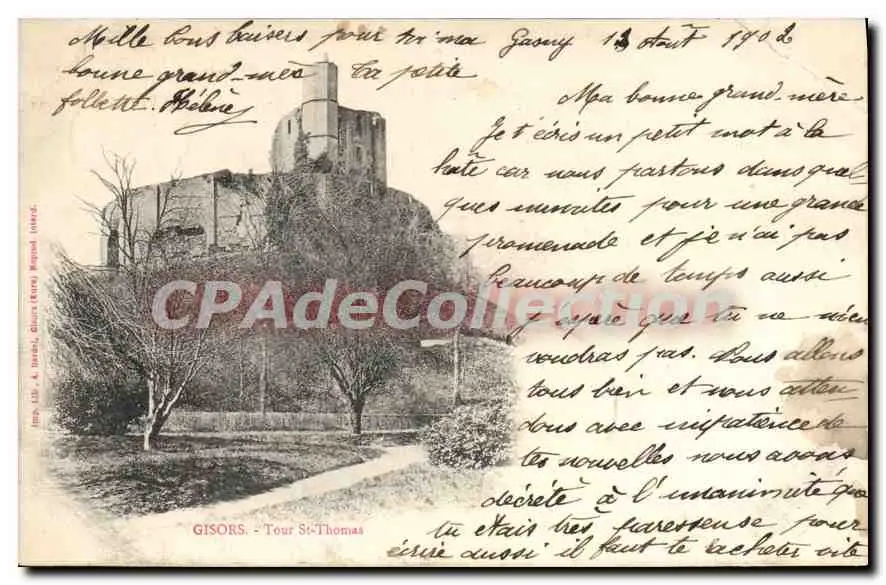 Gasny 12 Août 1902
Ma bonne grand-mère
Je t'écris un petit mot à la
hâte car nous partons dans quel-
ques minutes pour une grande
promenade et je n'ai pas
beaucoup de temps aussi
j'espère que tu ne m'en
voudras pas. Nous allons
tous bien et nous atten
dons avec impatience de
tes nouvelles nous avons
décrété à l'unanimité que
tu étais très paresseuse pour
écrire aussi il faut te racheter vite
Mille bons baisers pour toi ma
bonne grand-mère Ta petite
follette. Hélène
CPAdeCollection.com
GISORS. - Tour St-Thomas
Imp. Lib. A. Bardel, Gisors (Eure) Reprod. interd.